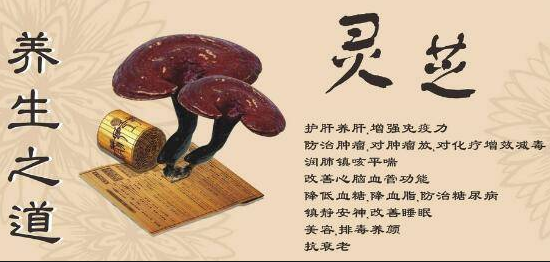 养生之道
灵芝
护肝养肝,增强免疫力
防治肿瘤,对肿瘤放,对化疗增效减毒
润肺镇咳平喘
改善心脑血管功能
降低血糖,降血脂,防治糖尿病
镇静安神,改善睡眠
美容,排毒养颜
抗衰老